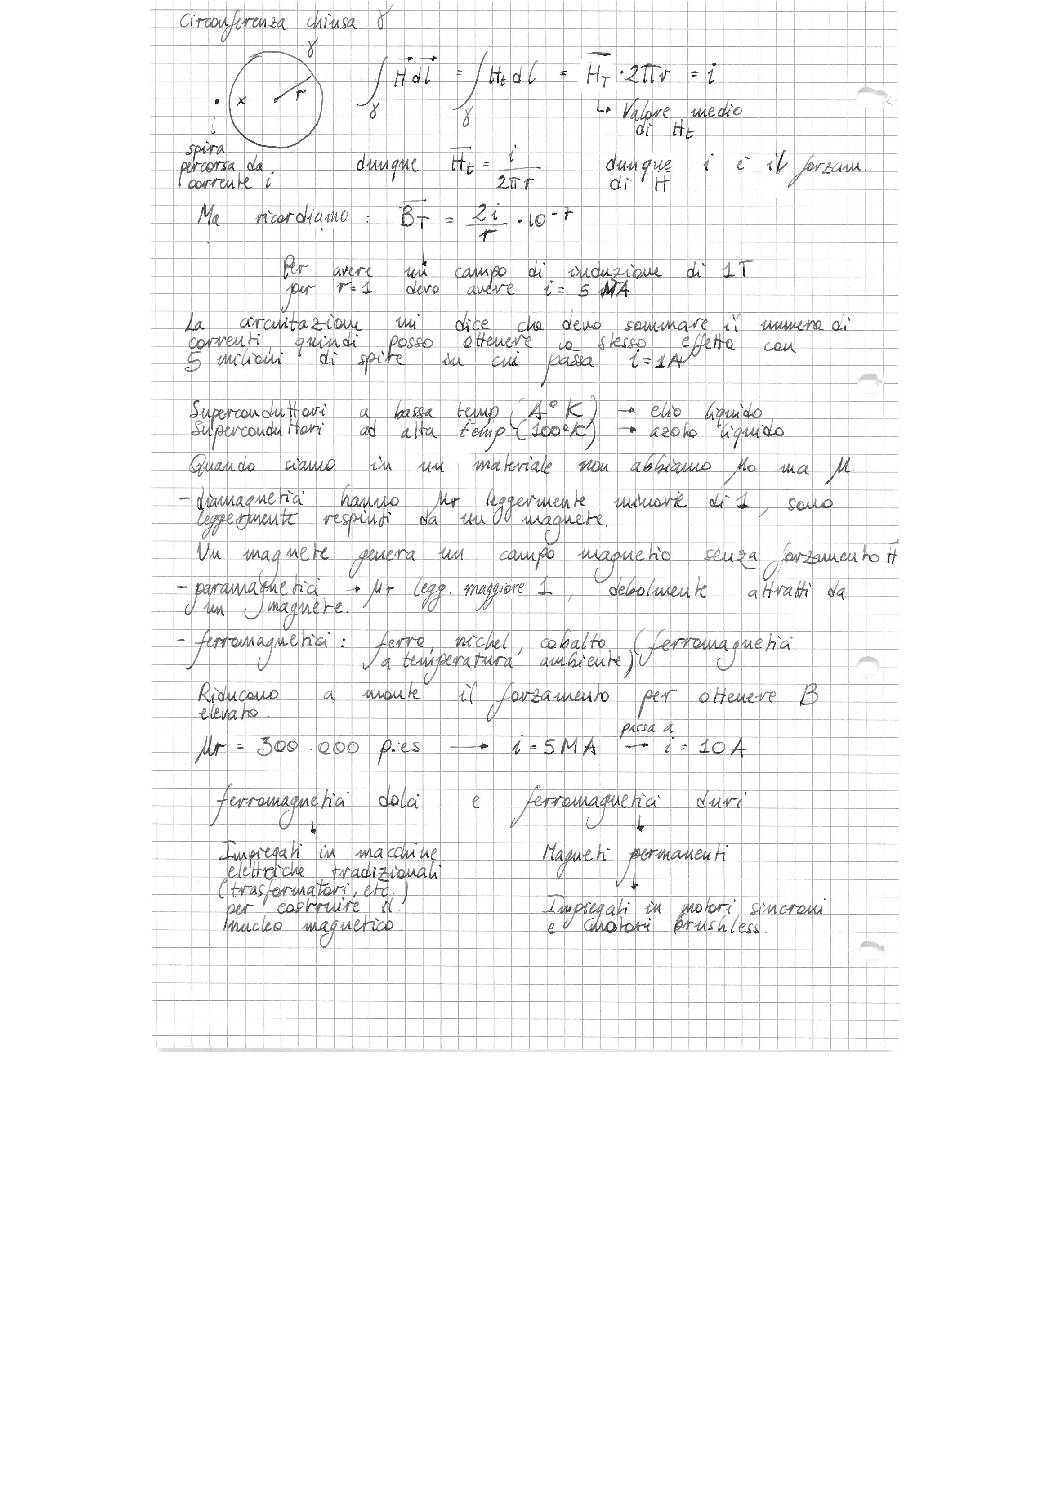 Circonferenza chiusa γ
γ
x r
i
∫γ H⃗ dl⃗ = ∫γ Ht dl = H̅T · 2πr = i
↳ Valore medio
di Ht
spira
percorsa da
corrente i
dunque H̅t = i / 2πr dunque i è il forzam.
di H
Ma ricordiamo : B̅T = 2i / r · 10⁻⁷
Per avere un campo di induzione di 1T
per r=1 devo avere i = 5 MA
La circuitazione mi dice che devo sommare il numero di
correnti, quindi posso ottenere lo stesso effetto con
5 milioni di spire in cui passa i=1A
Superconduttori a bassa temp (4°K) → elio liquido
Superconduttori ad alta temp (100°K) → azoto liquido
Quando siamo in un materiale non abbiamo μ0 ma μ
- diamagnetici hanno μr leggermente minore di 1, sono
leggermente respinti da un magnete.
Un magnete genera un campo magnetio senza forzamento H⃗
- paramagnetici → μr legg. maggiore 1, debolmente attratti da
un magnete.
- ferromagnetici : ferro, nichel, cobalto (ferromagnetici
a temperatura ambiente)
Riducono a monte il forzamento per ottenere B
elevato.
μr = 300.000 p.es → i = 5MA passa a → i = 10A
ferromagnetici dolci e ferromagnetici duri
↓ ↓
Impiegati in macchine
elettriche tradizionali
(trasformatori, etc.)
per costruire il
nucleo magnetico
Magneti permanenti
↓
Impiegati in motori sincroni
e motori brushless.